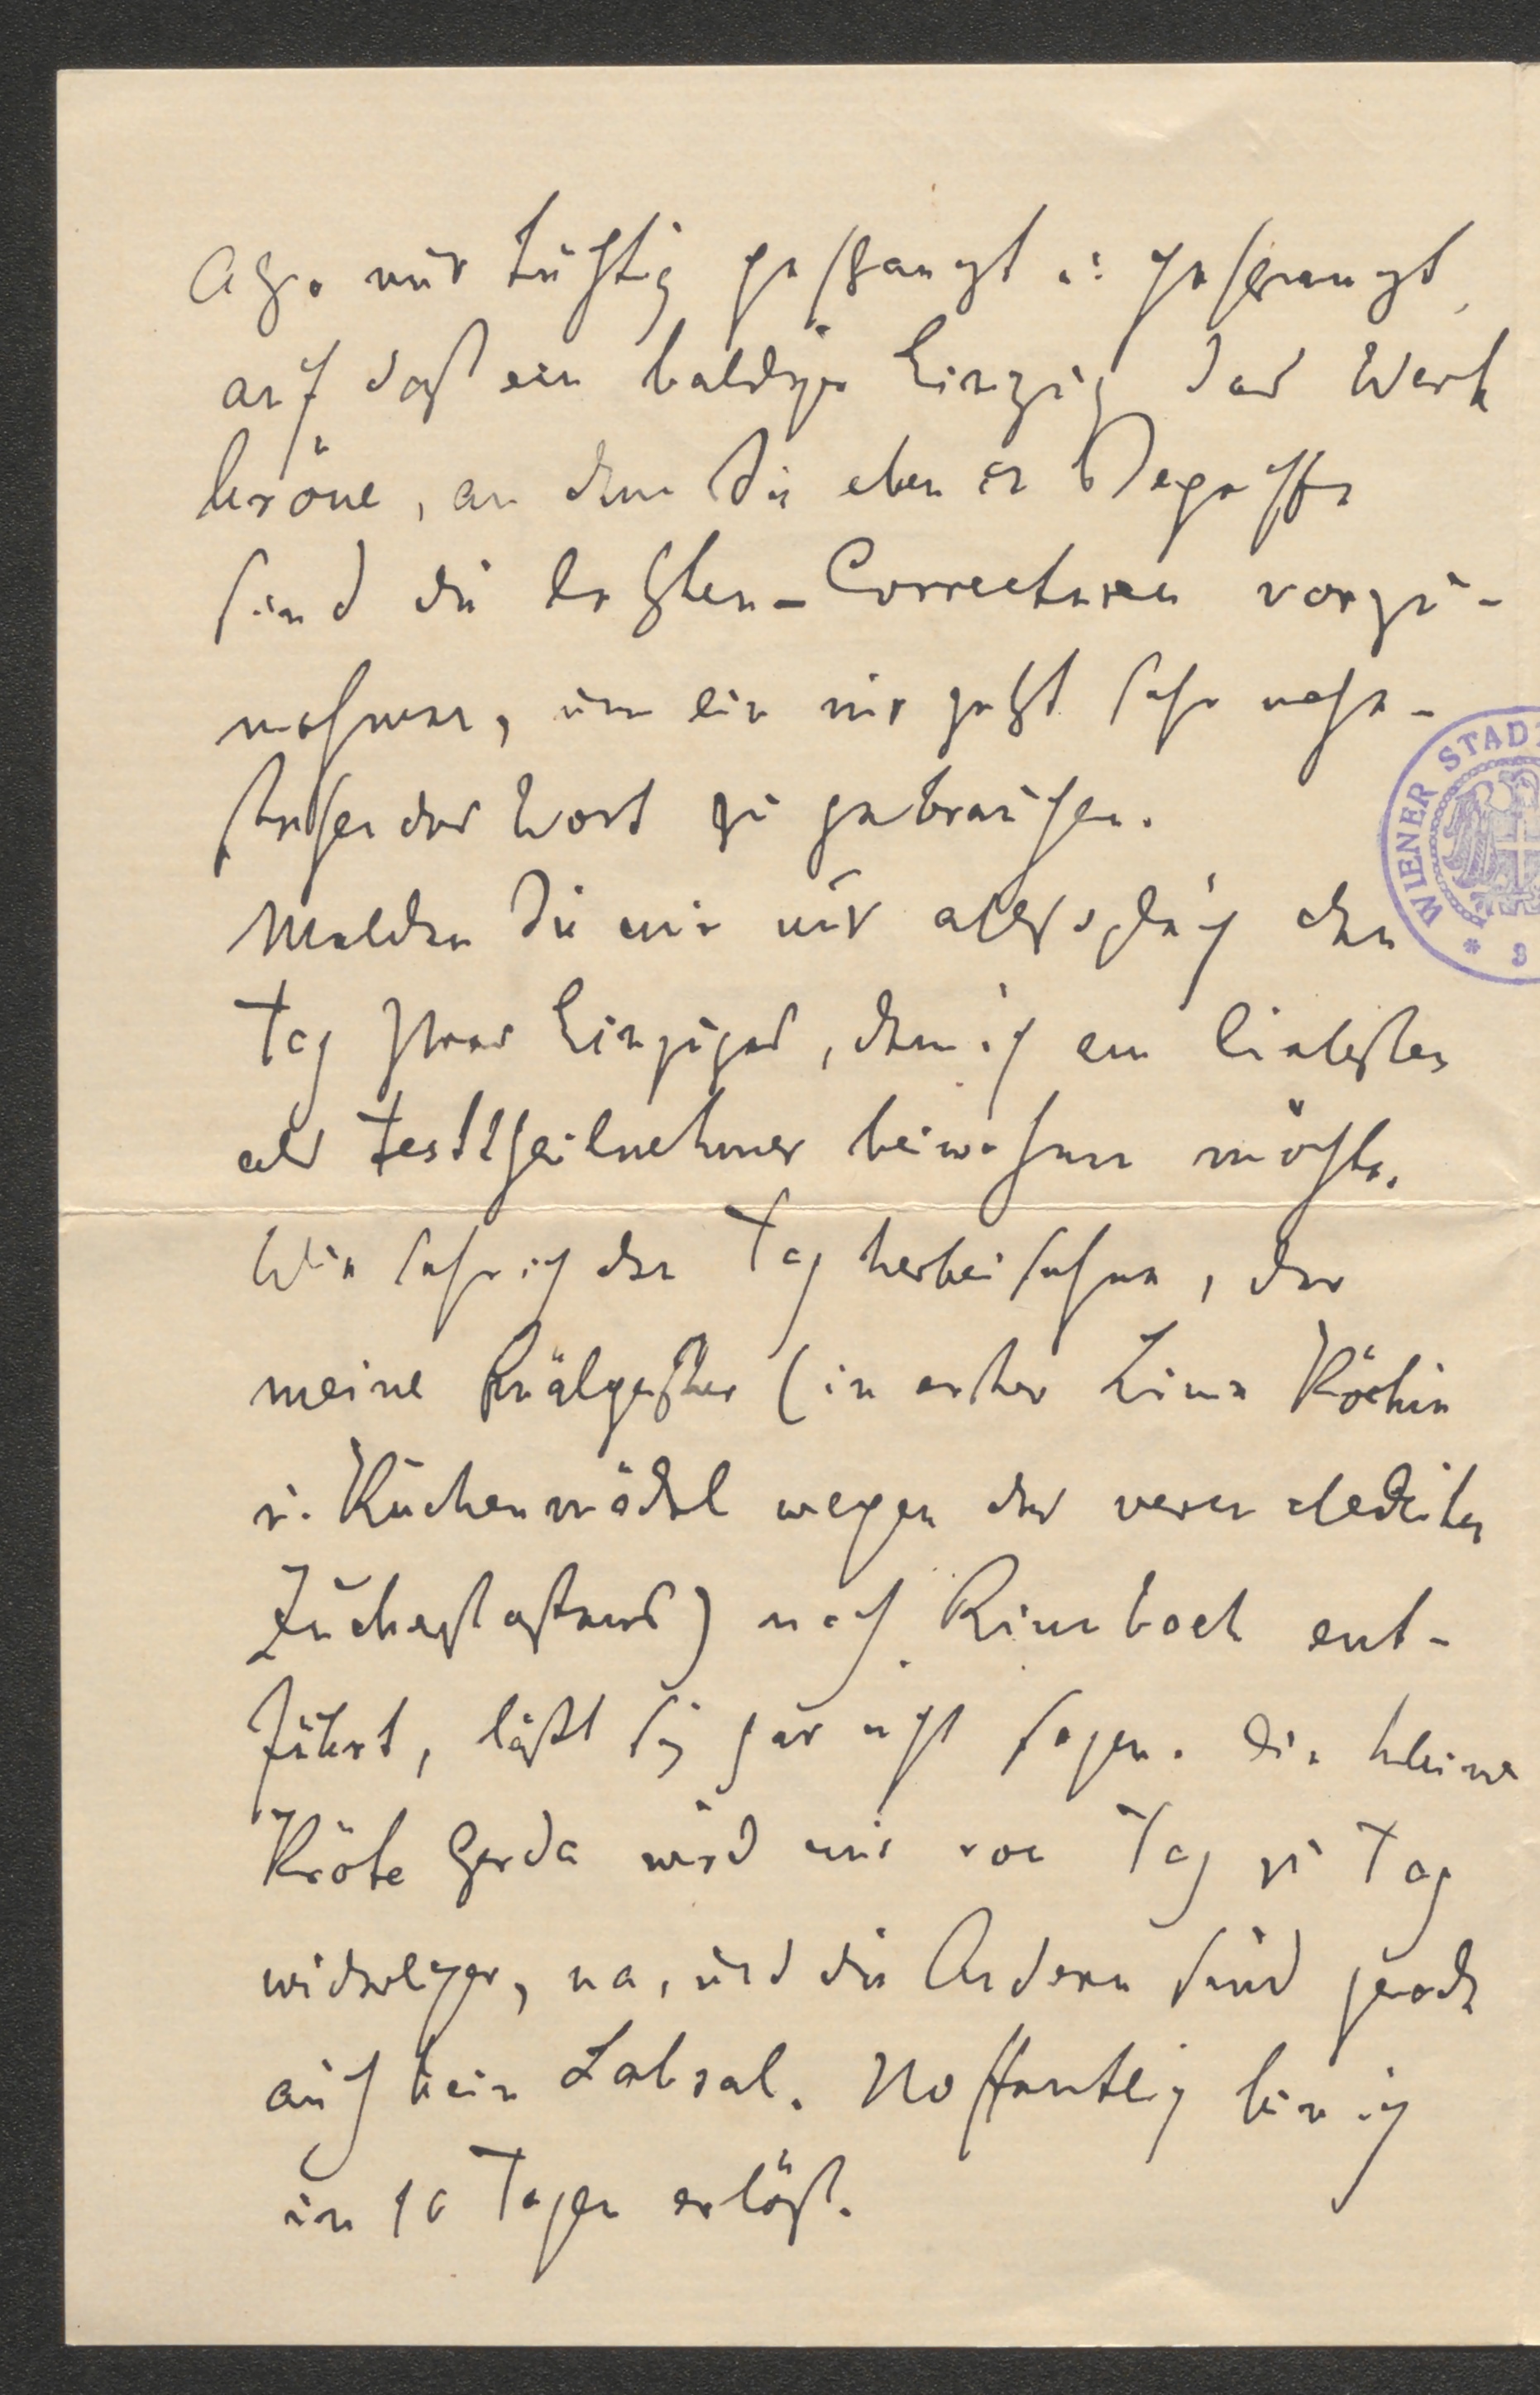 Also nur tüchtig gestrengt u: gestrengt,
auf daß ein baldiger Einzug das Werk
kröne, an dem Sie eben im Begriffe
sind die letzten-Correcturen vorzu-
nehmen, um ein mir jetzt sehr nahe-
stehendes Wort zu gebrauchen.
Melden Sie mir nur allsogleich den
Tag Ihres Einzuges, dem ich am liebsten
als Festtheilnehmer beiwohnen möchte.
Wie sehr ich den Tag herbeisehne, der
meine Quälgeister (in erster Linie Köchin
u. Küchenmädel wegen des
) nach Rimbach ent-
führt, läßt sich gar nicht sagen. Die kleine
Kröte Gerda wird mir von Tag zu Tag
widerlicher, na, und die Andern sind gerade
auch kein Labsal. Hoffentlich bin ich
in 10 Tagen erlöst.
WIENER STADT
* 9